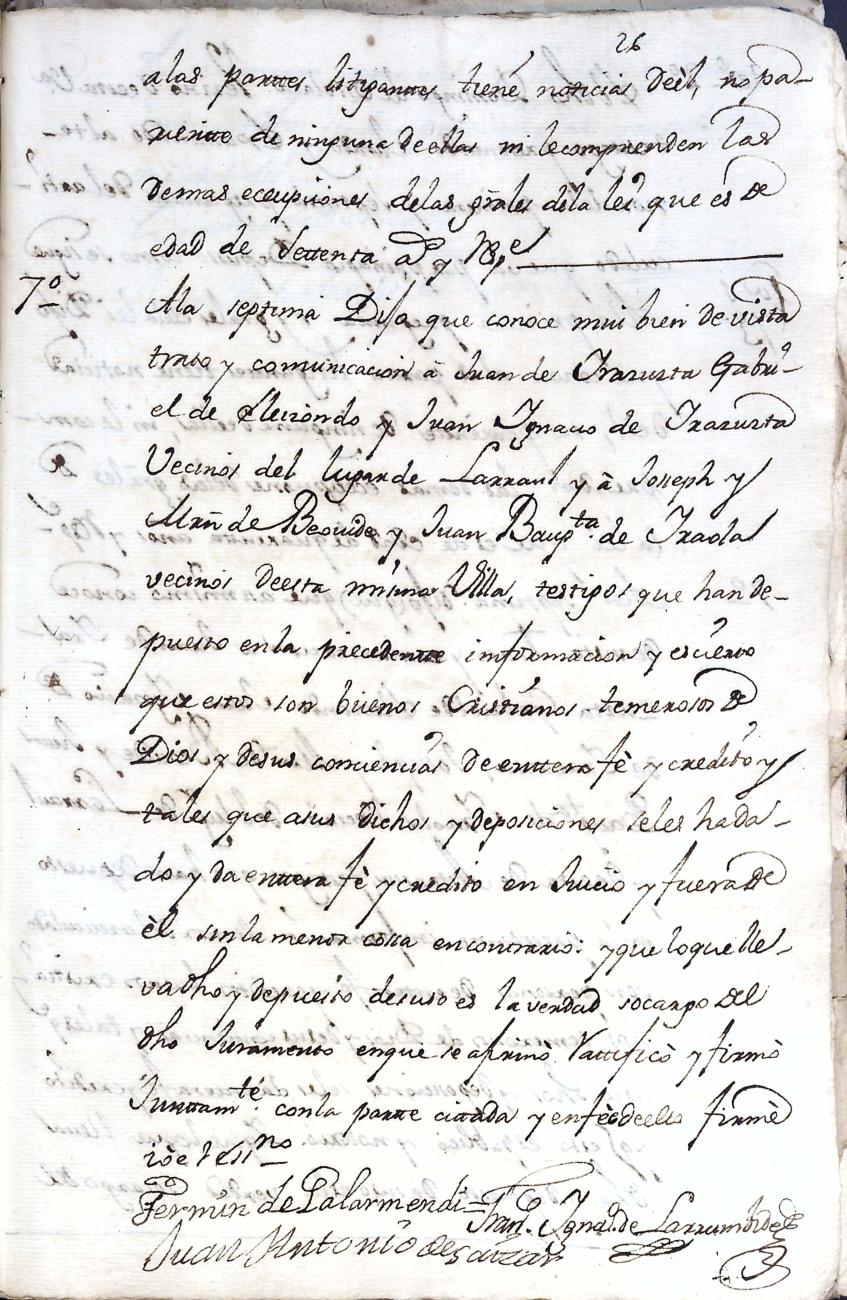 26
alas parttes litigantes tiené noticias deèl, no pa-
riente de ninguna de ellas ni le comprenden las
demas ecepciones delas grãles dèla lei que es de
edad de settenta as y Rpe
7º
Ala septima Dijo que conoce mui bien de vista
trato y comunicacion à Juan de Irazuzta Gabri-
el de Eleizondo y Juan Ignacio de Irazuzta
Vecinos del lugar de Larraul y à Joseph y
Mrñ de Beovide y Juan Baupta. de Iraola
vecinos de esta misma Villa, testigos que han de-
puesto en la precedentte informacion y es cierto
que estos son buenos Cristianos temerosos de
Dios y desus conciencias de enttera fè y credito y
tales que a sus dichos y deposiciones seles ha da-
do y da enttera fè y credito en Juicio y fuera de
èl sin la menor cossa en contrario: y que lo que lle-
va dho y depuesto desuso es la verdad socargo del
dho Juramento en que se afirmò Rattificò y firmò
Junttamté. con la partte cittada y en feè deello firmè
iò el essno
Fermin de Lalarmendi = Fran. Ignaº. de Larrumbide
Juan Antonio de Saizar